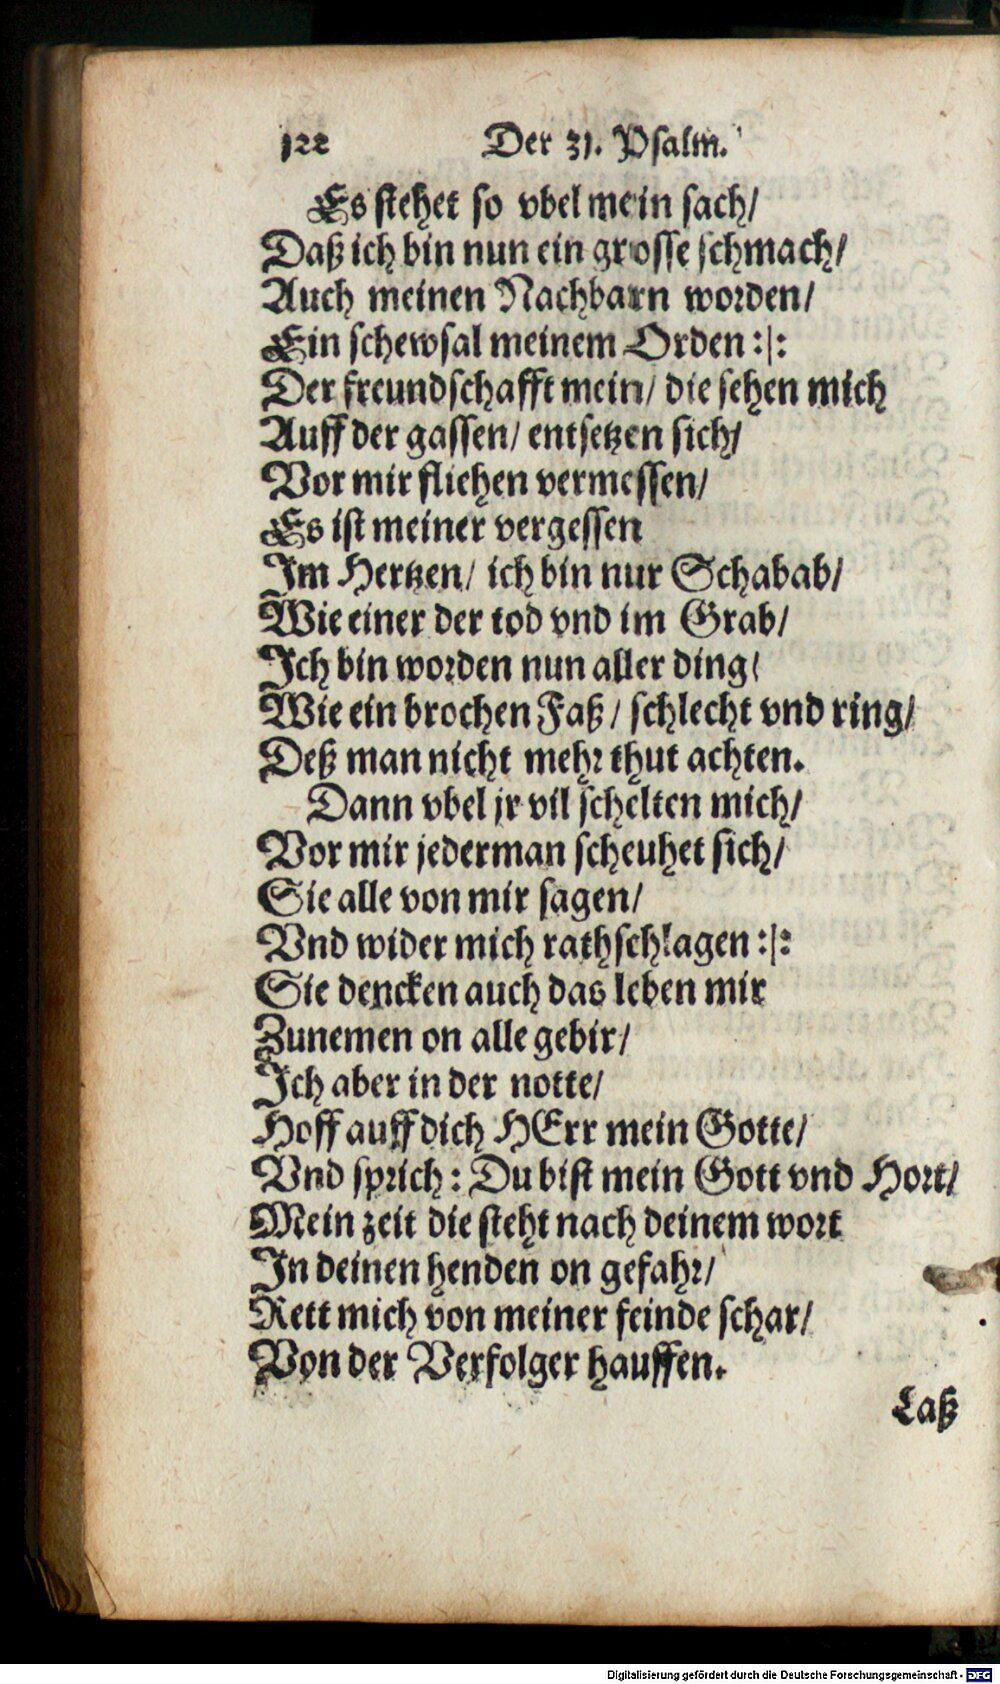 122 Der 31. Psalm.
Es stehet so vbel mein sach/
Daß ich bin nun ein grosse schmach/
Auch meinen Nachbarn worden/
Ein schewsal meinem Orden :|:
Der freundschafft mein/ die sehen mich
Auff der gassen/ entsetzen sich/
Vor mir fliehen vermessen/
Es ist meiner vergessen
Im Hertzen/ ich bin nur Schabab/
Wie einer der tod vnd im Grab/
Ich bin worden nun aller ding/
Wie ein brochen Faß/ schlecht vnd ring/
Deß man nicht mehr thut achten.
Dann vbel jr vil schelten mich/
Vor mir jederman scheuhet sich/
Sie alle von mir sagen/
Vnd wider mich rathschlagen :|:
Sie dencken auch das leben mir
Zunemen on alle gebir/
Ich aber in der notte/
Hoff auff dich HErr mein Gotte/
Vnd sprich: Du bist mein Gott vnd Hort/
Mein zeit die steht nach deinem wort
In deinen henden on gefahr/
Rett mich von meiner feinde schar/
Von der Verfolger hauffen.
Laß
Digitalisierung gefördert durch die Deutsche Forschungsgemeinschaft - DFG